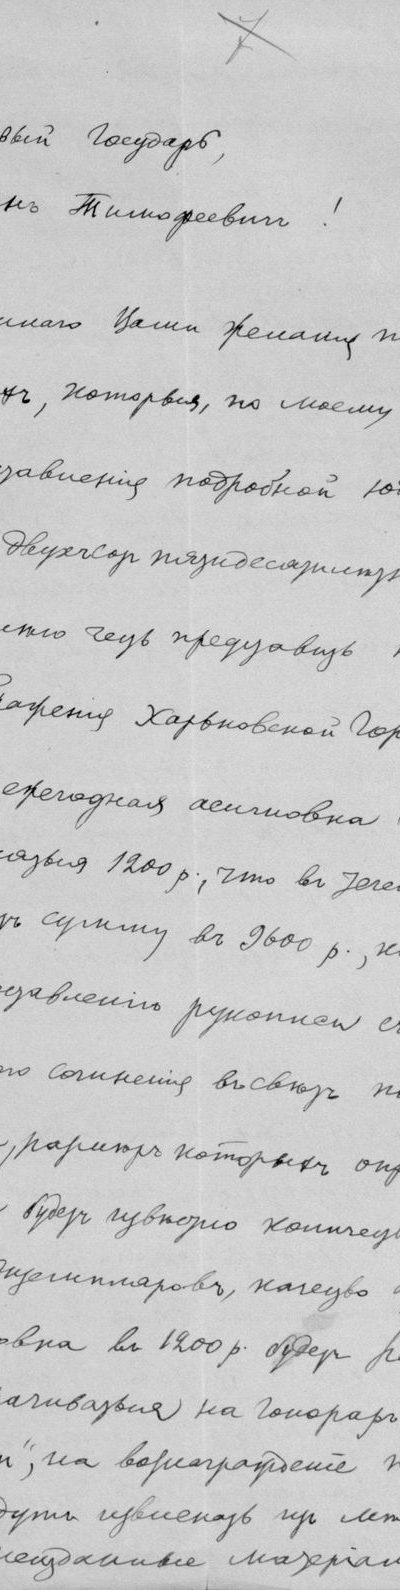 7
вый Государь,
нъ Тимофеевичъ!
ннаго Вами желанія п
хъ, которыя, по моему
тавленія подробной
двухсот пятидесятилѣт
честь представить
ражения Харьковской Гор
ежегодная асигновка
1200 р., что въ тече
сумму въ 9600 р., н
ставленію рукописи
го сочиненія въ свѣтъ
, размѣръ которыхъ опр
будетъ извѣстно количес
экземпляровъ, качество
овка въ 1200 р. будетъ
чиваться на гонораръ
и", на вознагражденіе
дутъ извлекать изъ
неизданные матеріал